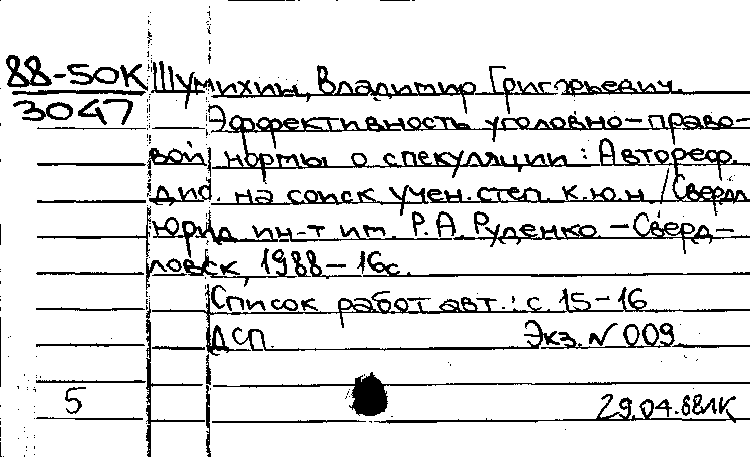 88-50К
3047
Шумихин, Владимир Григорьевич.
Эффективность уголовно-право-
вой нормы о спекуляции : Автореф.
дис. на соиск учен. степ. к.ю.н / Свердл
юрид ин-т им. Р.А. Руденко - Сверд-
ловск, 1988 - 16с.
Список работ авт.: с. 15-16
ДСП. Экз. № 009.
5 29.04.88